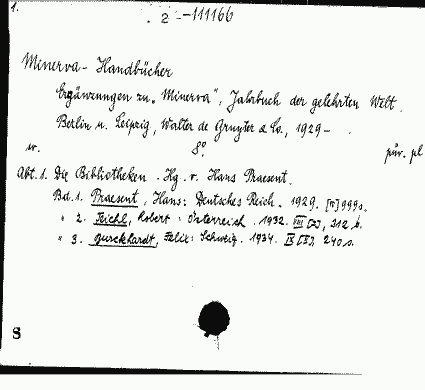 1.
2 - 111166
Minerva - Handbücher
Ergänzungen zu "Minerva", Jahrbuch der gelehrten Welt.
Berlin u. Leipzig, Walter de Gruyter & Co., 1929 -
w. 8° pův. pl
Abt. 1. Die Bibliotheken. Hg. v. Hans Praesent.
Bd. 1. Praesent, Hans: Deutsches Reich. 1929. 999 s.
" 2. Teichl, Robert: Österreich. 1932. VIII 312 s.
" 3. Burckhardt, Felix: Schweiz. 1934. 240 s.
S